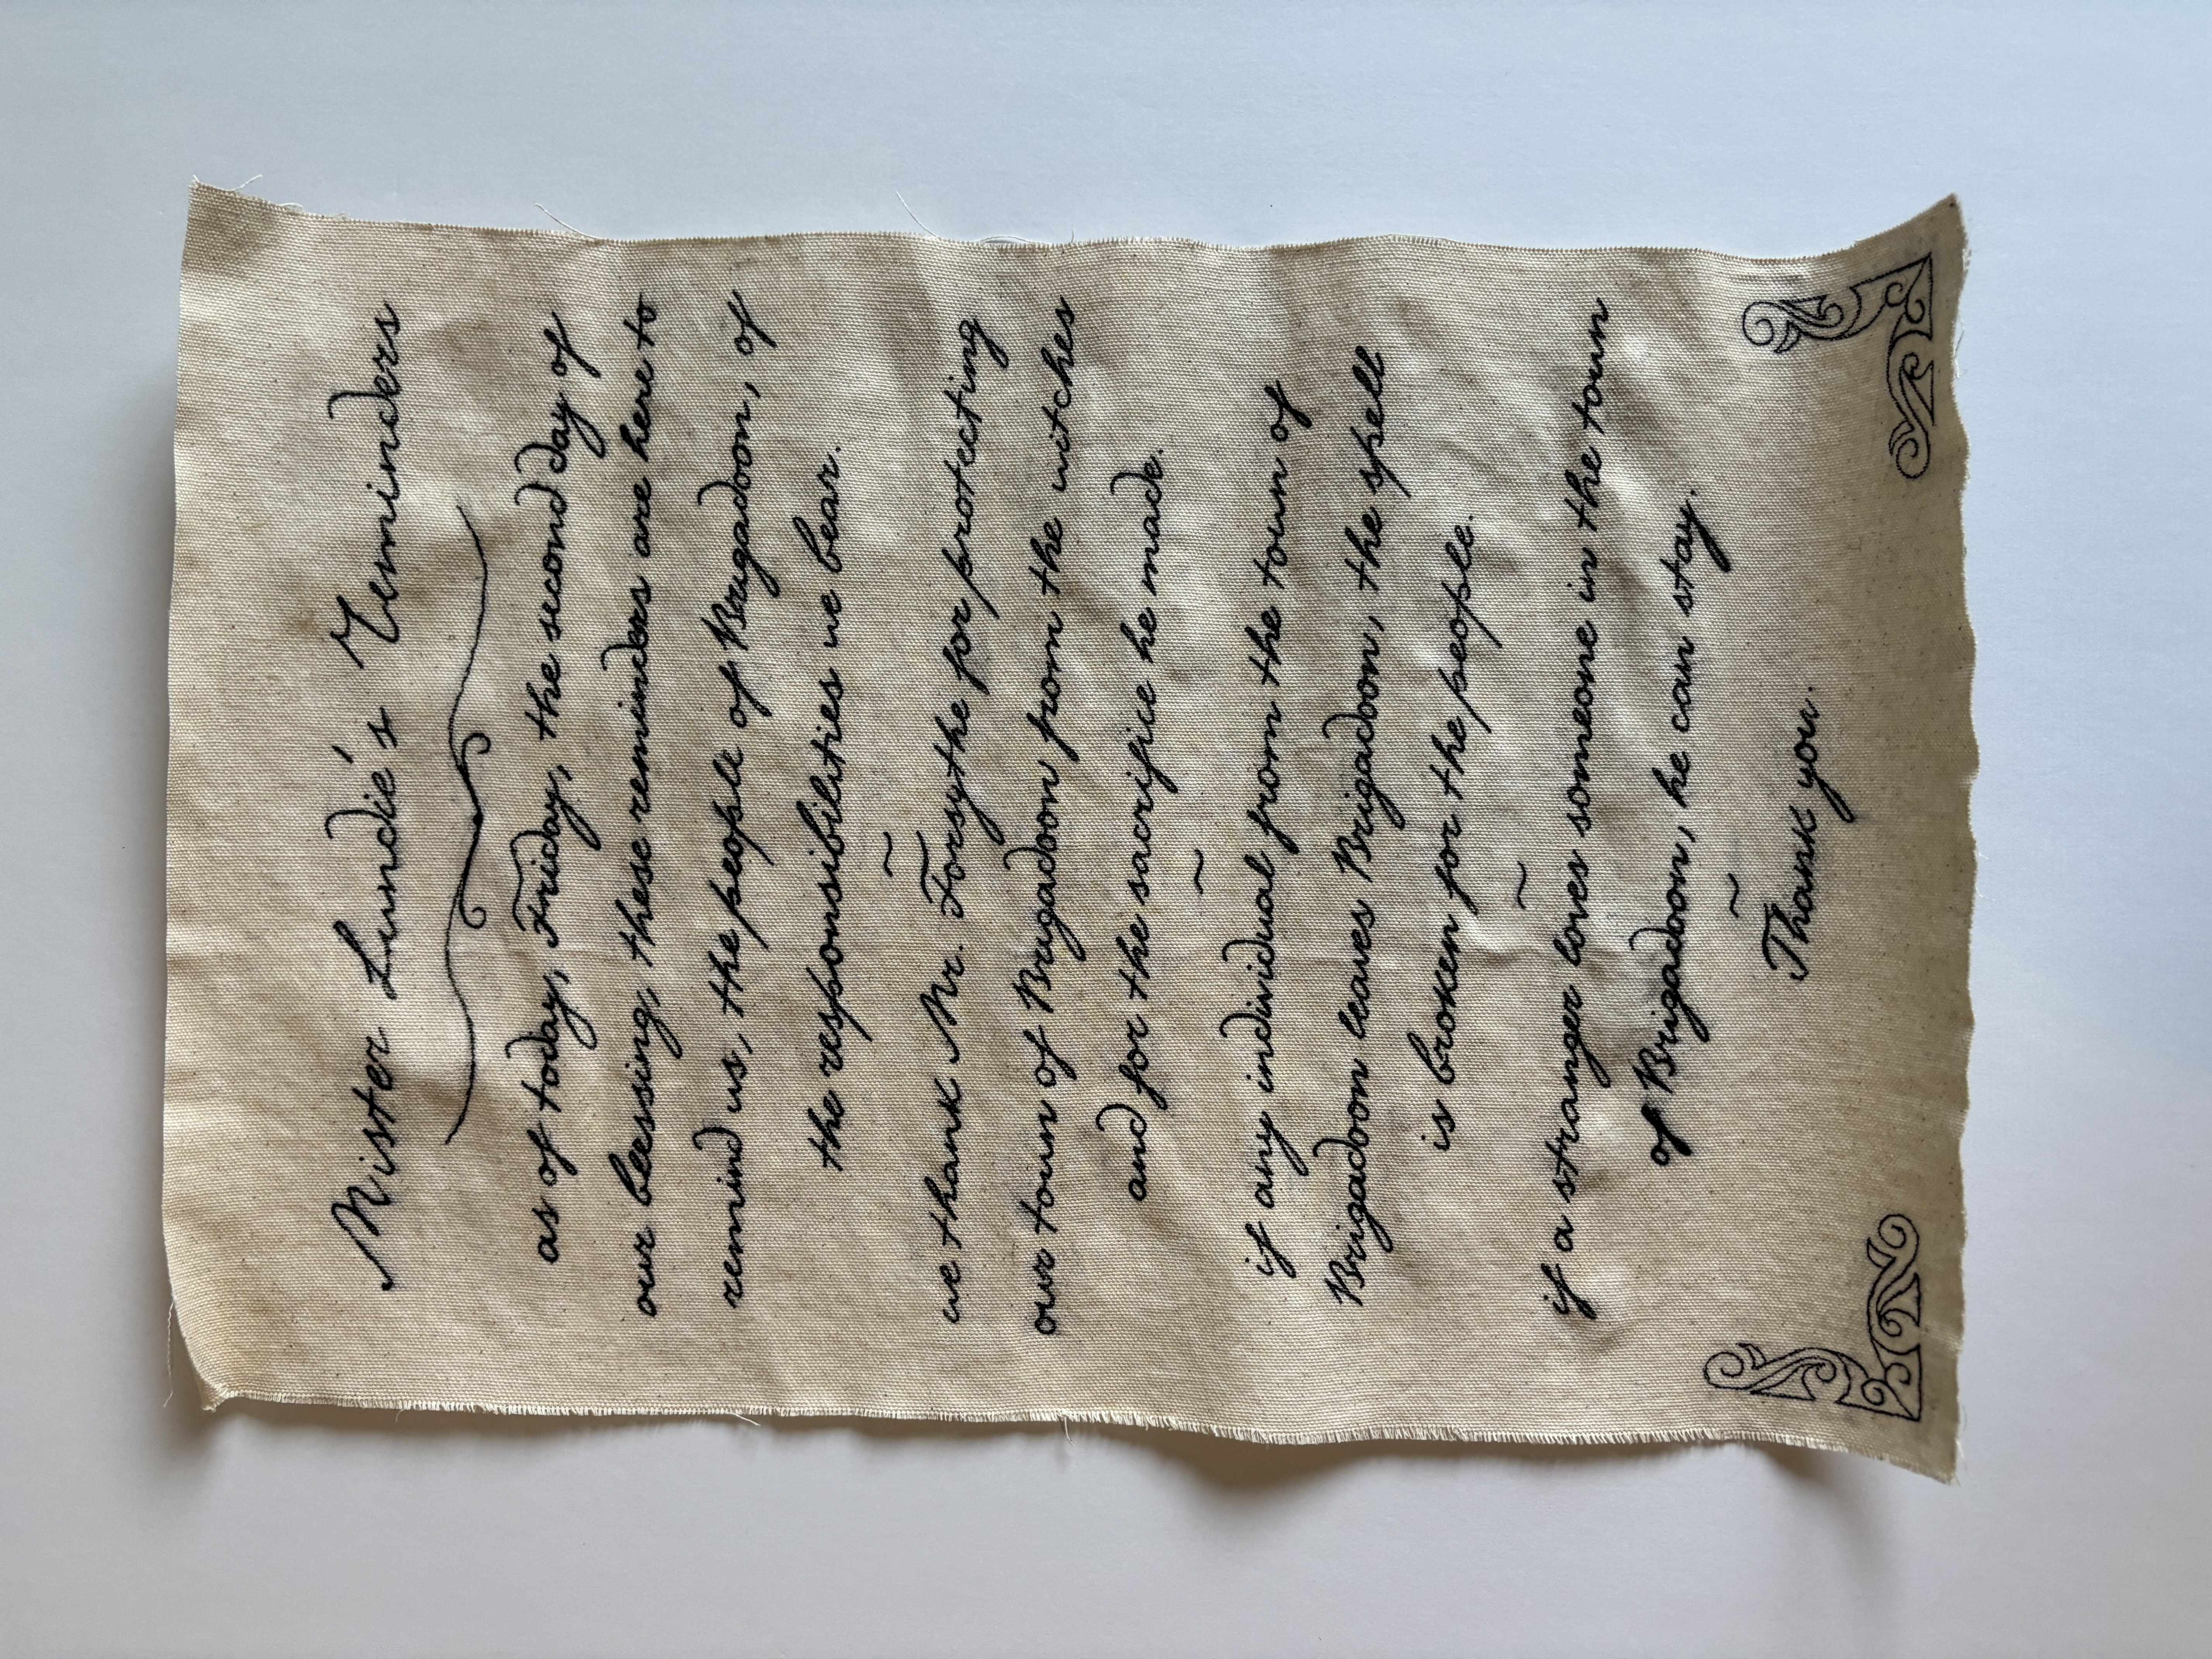 Mister Lundie's Reminders
as of today, Friday, the second day of
our blessing, these reminders are here to
remind us, the people of Brigadoon, of
the responsibilities we bear.
~
we thank Mr. Forsythe for protecting
our town of Brigadoon from the witches
and for the sacrifice he made.
~
if any individual from the town of
Brigadoon leaves Brigadoon, the spell
is broken for the people.
~
if a stranger loves someone in the town
of Brigadoon, he can stay.
~
Thank you.